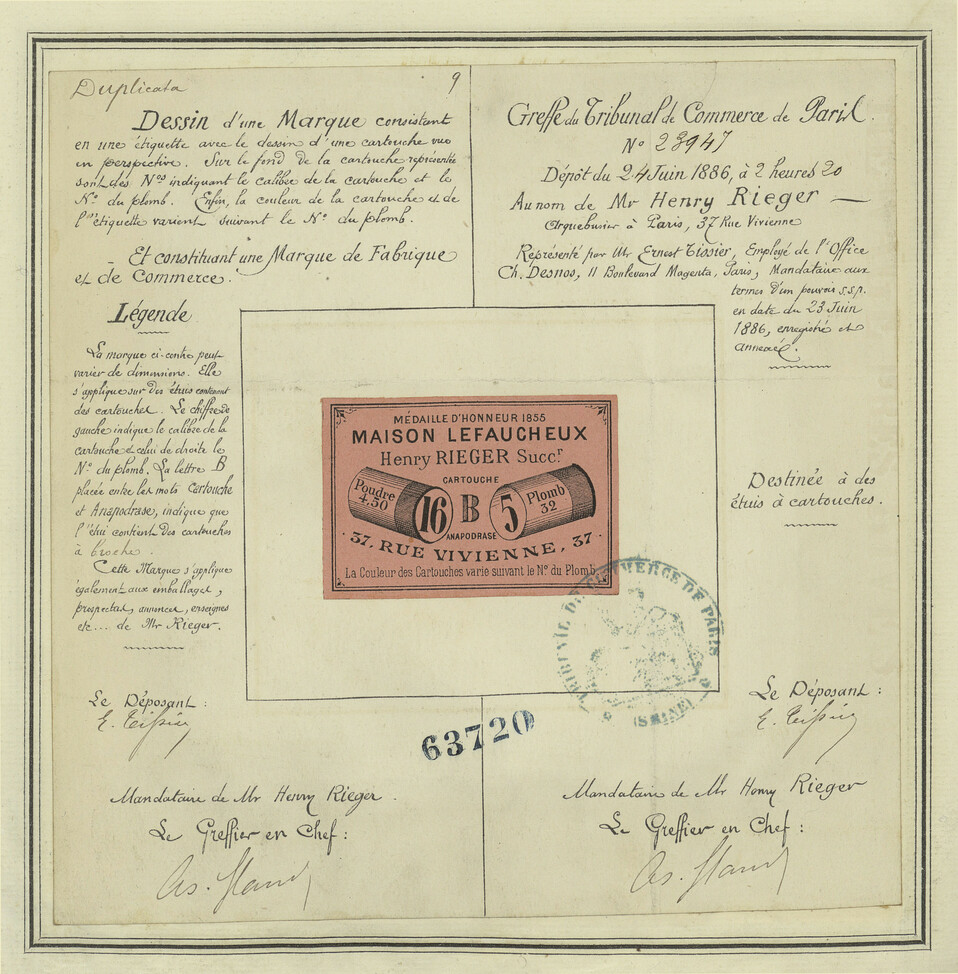 Duplicata
9
Dessin d'une Marque consistant
en une étiquette avec le dessin d'une cartouche vue
en perspective. Sur le fond de la cartouche représentée
sont des Nos indiquant le calibre de la cartouche et le
No du plomb. Enfin, la couleur de la cartouche et de
l'étiquette varient suivant le No du plomb.
Et constituant une Marque de Fabrique
et de Commerce.
Légende
La marque ci-contre peut
varier de dimensions. Elle
s'applique sur des étuis contenant
des cartouches. Le chiffre de
gauche indique le calibre de la
cartouche et celui de droite le
No du plomb. La lettre B
placée entre les mots Cartouche
et Anapodrase, indique que
l'étui contient des cartouches
à broche.
Cette Marque s'applique
également aux emballages,
prospectus, annonces, enseignes
etc... de Mr Rieger.
Le Déposant :
E. Tissier
Mandataire de Mr Henry Rieger.
Le Greffier en Chef :
Greffe du Tribunal de Commerce de Paris.
No 23947
Dépôt du 24 Juin 1886, à 2 heures 20
Au nom de Mr Henry Rieger
Arquebusier à Paris, 37 Rue Vivienne
Représenté par Mr Ernest Tissier, Employé de l'Office
Ch. Desnos, 11 Boulevard Magenta, Paris, Mandataire aux
termes d'un pouvoir s.s.p.
en date du 23 Juin
1886, enregistré et
annexé.
MÉDAILLE D'HONNEUR 1855
MAISON LEFAUCHEUX
Henry RIEGER Succr
CARTOUCHE
Poudre
4,50
16
B
5
Plomb
32
ANAPODRASE
37, RUE VIVIENNE, 37
La Couleur des Cartouches varie suivant le No du Plomb
Destinée à des
étuis à cartouches.
TRIBUNAL DE COMMERCE DE PARIS
(SEINE)
63720
Le Déposant :
E. Tissier
Mandataire de Mr Henry Rieger
Le Greffier en Chef :